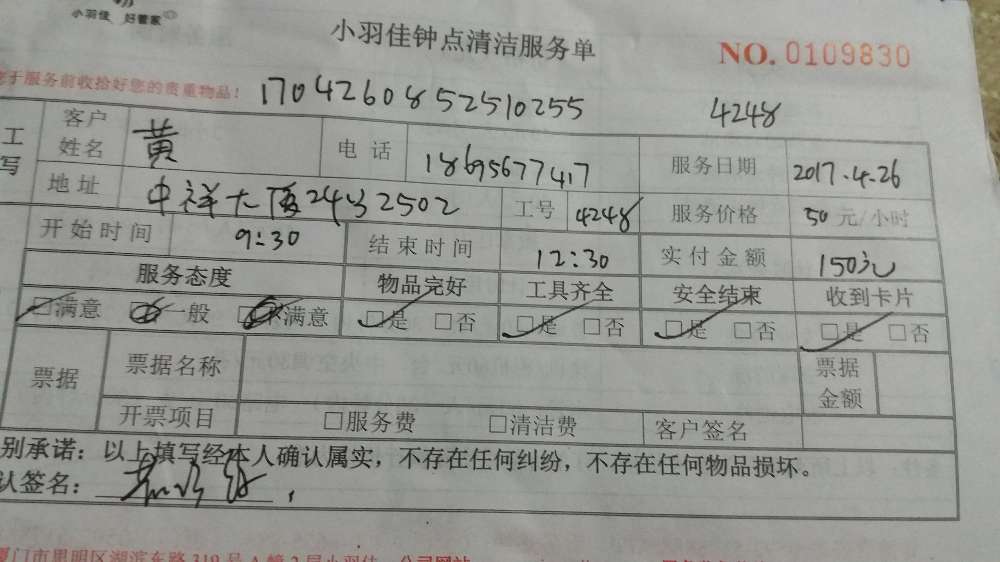 小羽佳 好管家
小羽佳钟点清洁服务单
NO. 0109830
于服务前收拾好您的贵重物品！
170426085251 0255
4248
工 客户姓名 黄 电话 18695677417 服务日期 2017.4.26
写 地址 中祥大厦24号2502 工号 4248 服务价格 50元/小时
开始时间 9:30 结束时间 12:30 实付金额 150元
服务态度 物品完好 工具齐全 安全结束 收到卡片
□满意 □一般 □不满意 □是 □否 □是 □否 □是 □否 □是 □否
票据 票据名称 票据金额
开票项目 □服务费 □清洁费 客户签名
别承诺：以上填写经本人确认属实，不存在任何纠纷，不存在任何物品损坏。
认签名：
厦门市思明区湖滨东路319号A幢2层小羽佳 公司网站